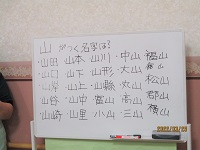 山 がつく名字は?
・山田 ・山本 ・山川 ・中山 福山
・山口 ・山下 ・山形 ・大山
・山岸 ・山上 ・山縣 ・丸山 松山
・山谷 ・山中 ・富山 ・高山 郡山
・山崎 ・山里 ・小山 ・三山 横山